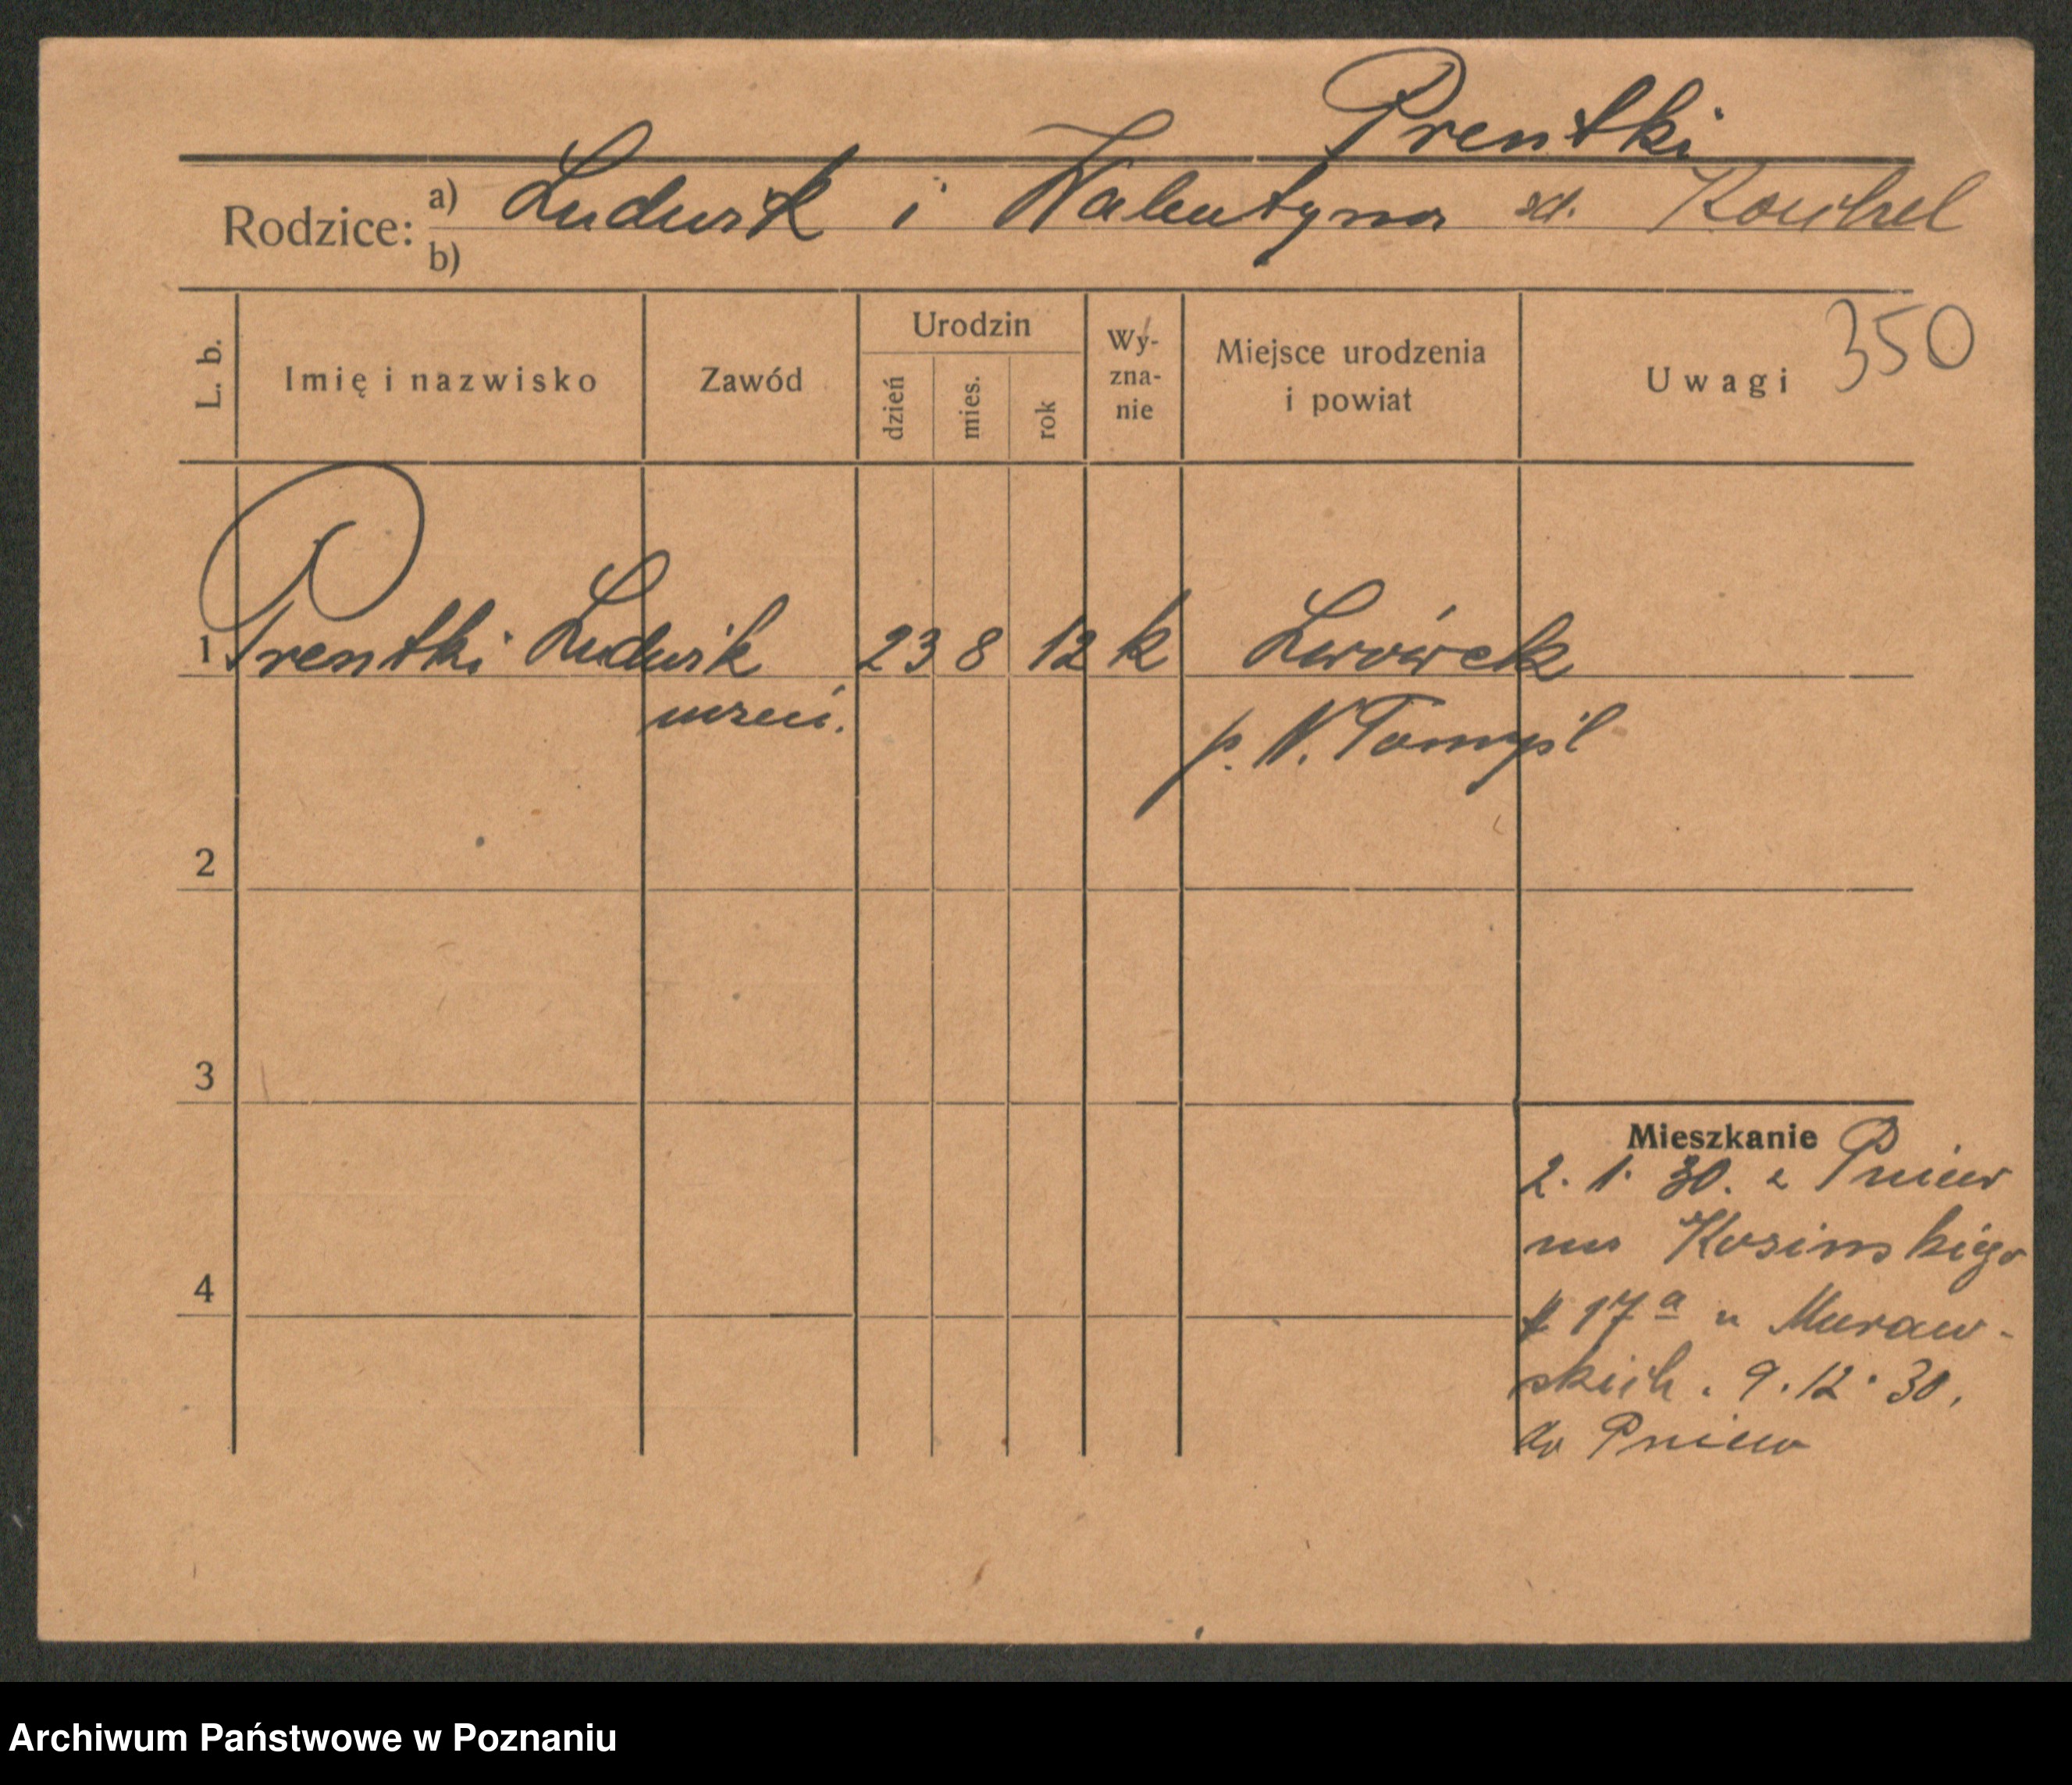 Prentki
Rodzice: a) Ludwik i Walentyna
b)
L. b. Imię i nazwisko Zawód Urodzin dzień mies. rok Wy- zna- nie Miejsce urodzenia i powiat Uwagi 350
1 Prentki Ludwik 23 8 12 k Lwówek
uczeń. p. N. Tomyśl
2
3
Mieszkanie
2. 1. 30. z Pniew
na Kosinskiego
4
17a u Muraw-
skich. 9. 12. 30.
do Pniew
Archiwum Państwowe w Poznaniu